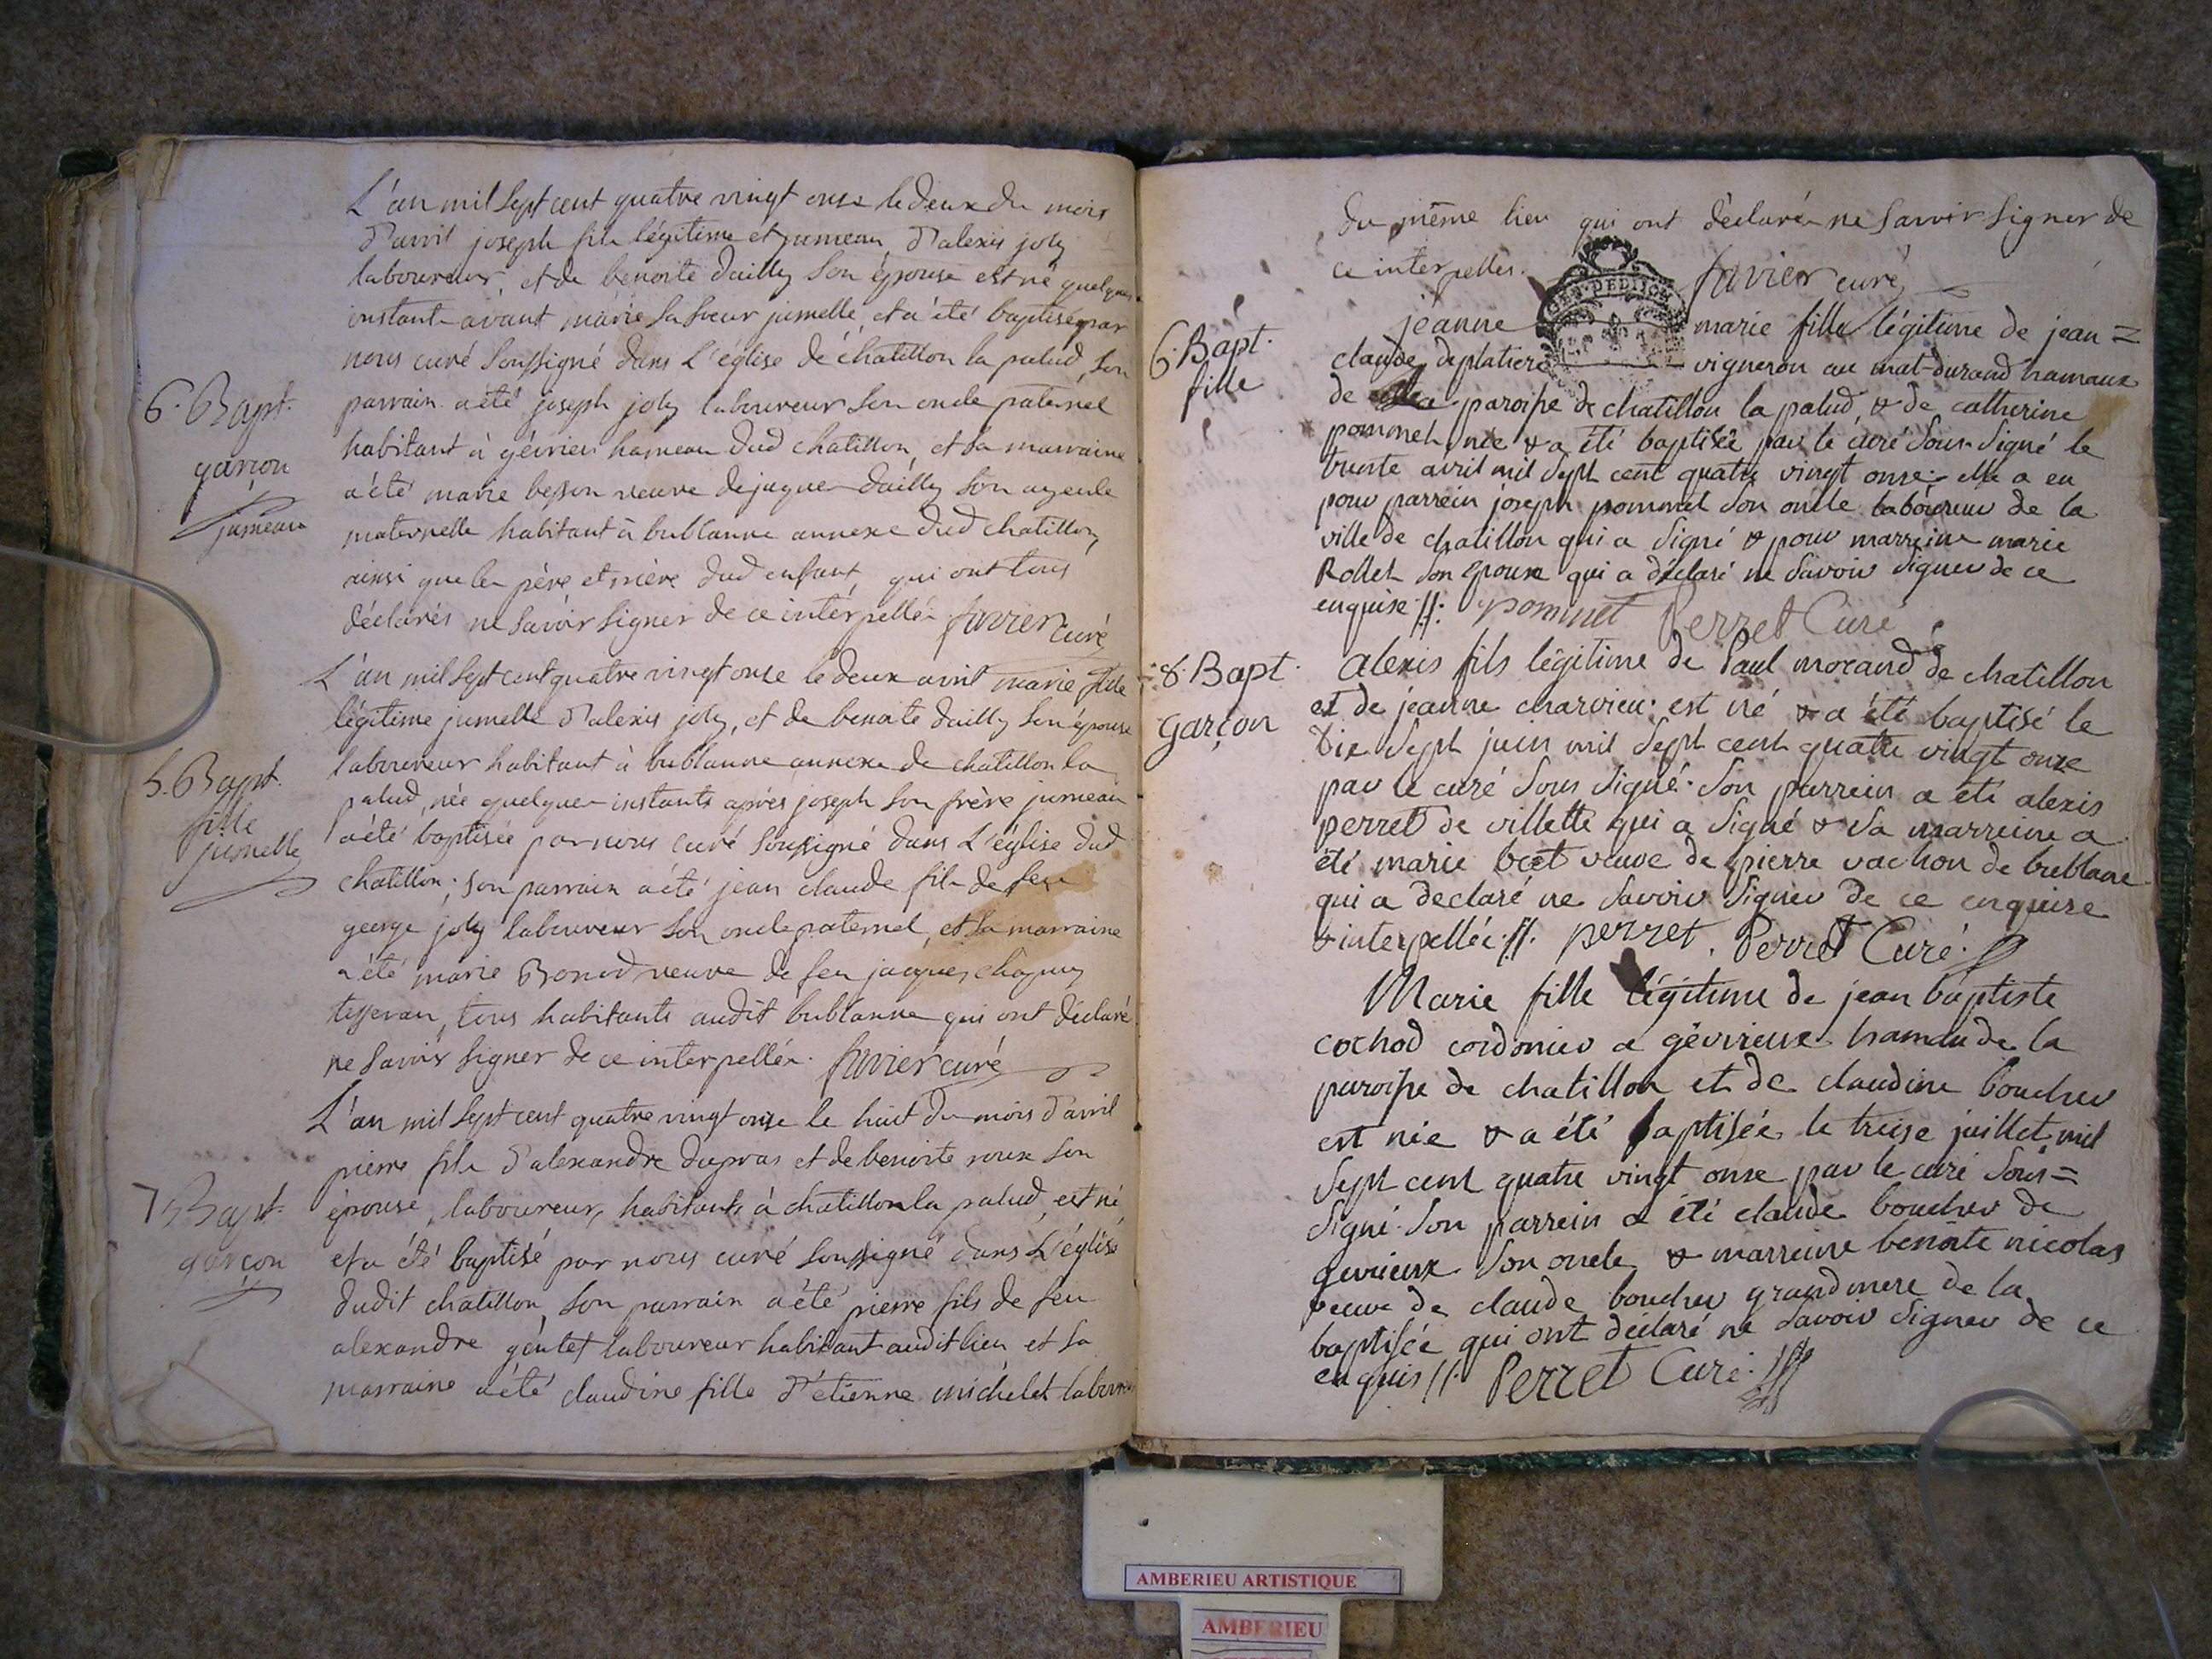 L'an mil sept cent quatre vingt onze le deux du mois
d'avril joseph fils légitime et jumeau d'alexis joly
laboureur, et de benoite dailly son épouse est né quelques
instants avant marie sa soeur jumelle, et a été baptisé par
nous curé soussigné dans L'église de chatillon la palud, son
parrain a été joseph joly laboureur son oncle paternel
habitant à gévrieu hameau dud chatillon, et sa marraine
a été marie besson veuve de jaques dailly son ayeule
maternelle habitant à bublanne annexe dud chatillon,
ainsi que les père et mère dud enfant, qui ont tous
déclarés ne savoir signer de ce intérpellés favier curé
6. Bapt.
garçon
jumeau
L'an mil sept cent quatre vingt onze le deux avril marie fille
légitime jumelle d'alexis joly, et de benoite dailly son épouse
laboureur habitant à bublanne annexe de chatillon la
palud, née quelques instants après joseph son frère jumeau
a été baptisée par nous curé soussigné dans L'église dud
chatillon; son parrain a été jean claude fils de feu
george joly laboureur son oncle paternel, et sa marraine
a été marie veuve de feu jacques
tisseran, tous habitants audit bublanne qui ont déclaré
ne savoir signer de ce interpellés. favier curé
5. Bapt.
fille
jumelle
L'an mil sept cent quatre vingt onze le huit du mois d'avril
pierre fils d'alexandre dupras et de benoite roux son
épouse, laboureur, habitants à chatillon la palud, est né
et a été baptisé par nous curé soussigné dans L'église
dudit chatillon, son parrain a été pierre fils de feu
alexandre géntet laboureur habitant audit lieu et sa
marraine a été claudine fille d'étienne michelet laboureur
7 Bapt.
garçon
du même lieu qui ont déclarés ne savoir signer de
ce interpellés. favier curé
GEN. DEDIION
jeanne marie fille légitime de jean =
claude deplatiere vigneron au mat-durand hamaux
de paroisse de chatillon la palud, & de catherine
pommet née & a été baptisée par le curé sous signé le
trente avril mil sept cent quatre vingt onse elle a eu
pour parrein joseph pommet son oncle laboureur de la
ville de chatillon qui a signé & pour marreine marie
Rollet son epouse qui a déclaré ne savoir signer de ce
enquise //. pommet Perret Curé
6. Bapt.
fille
alexis fils légitime de Paul morand de chatillon
et de jeanne charvieu: est né & a été baptisé le
dix sept juin mil sept cent quatre vingt onze
par le curé sous signé. son parrein a été alexis
perret de villette qui a signé & sa marreine a
été marie veuve de pierre vachon de bublane
qui a declaré ne savoir signer de ce enquise
& interpellée. //. perret. Perret Curé.
8. Bapt.
garçon
Marie fille légitime de jean baptiste
cochod cordonier a gévrieux hamau de la
paroisse de chatillon et de claudine boucher
est née & a été baptisée le treise juillet mil
sept cent quatre vingt onse par le curé sous =
signé. son parrein a été claude boucher de
gevrieux son oncle & marreine benoite nicolas
veuve de claude boucher grandmere de la
baptisée qui ont déclaré ne savoir signer de ce
enquis //. Perret Curé.
AMBERIEU ARTISTIQUE
AMBERIEU